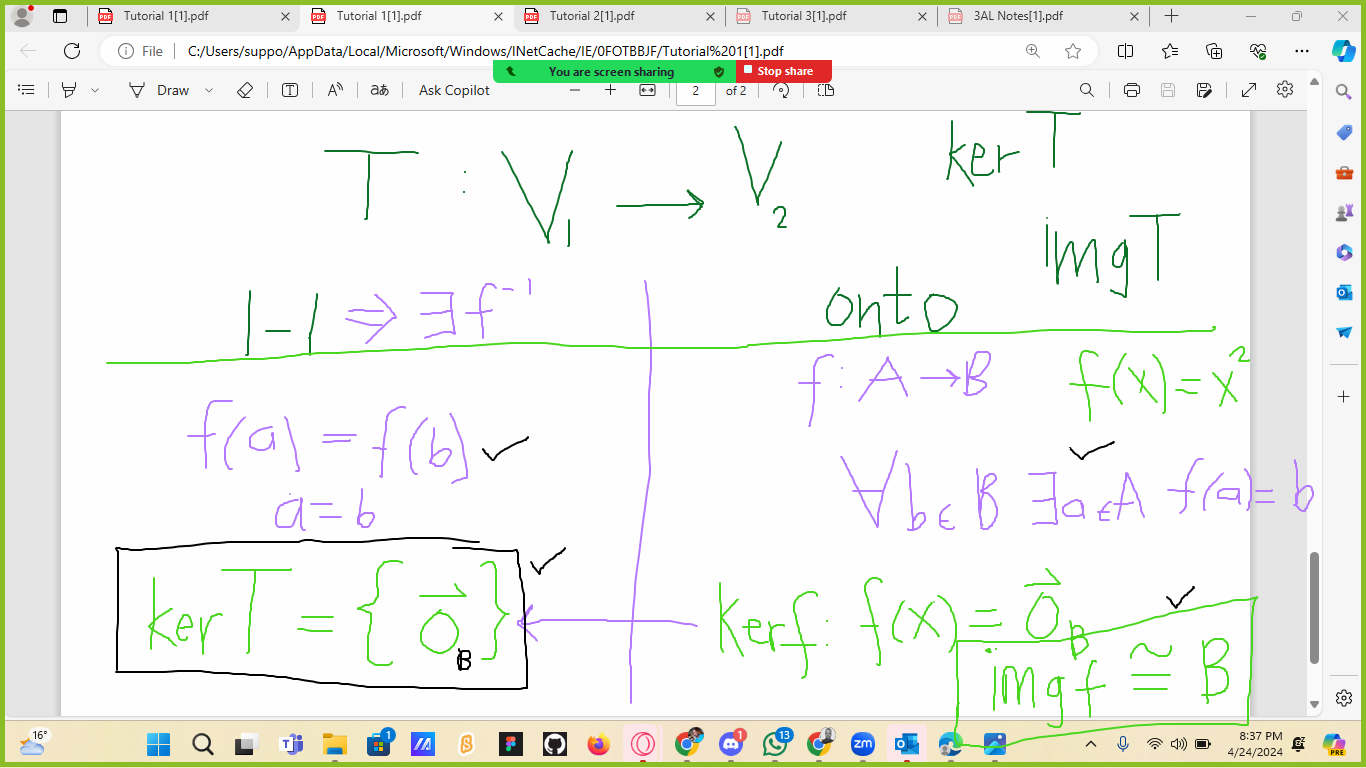 Tutorial 1[1].pdf
Tutorial 1[1].pdf
Tutorial 2[1].pdf
Tutorial 3[1].pdf
3AL Notes[1].pdf
File
C:/Users/suppo/AppData/Local/Microsoft/Windows/INetCache/IE/0FOTBBJF/Tutorial%201[1].pdf
You are screen sharing
Stop share
Draw
Ask Copilot
2
of 2
T : V₁ → V₂
ker T
img T
1-1 ⇒ ∃ f⁻¹
onto
f : A → B
f(x) = x²
f(a) = f(b) ✓
a = b
✓
∀ b ∈ B ∃ a ∈ A f(a) = b
✓
ker T = { 0⃗_B }
ker f : f(x) = 0⃗_B
✓
img f ≅ B
16°
1
1
13
zm
8:37 PM
4/24/2024
PRE